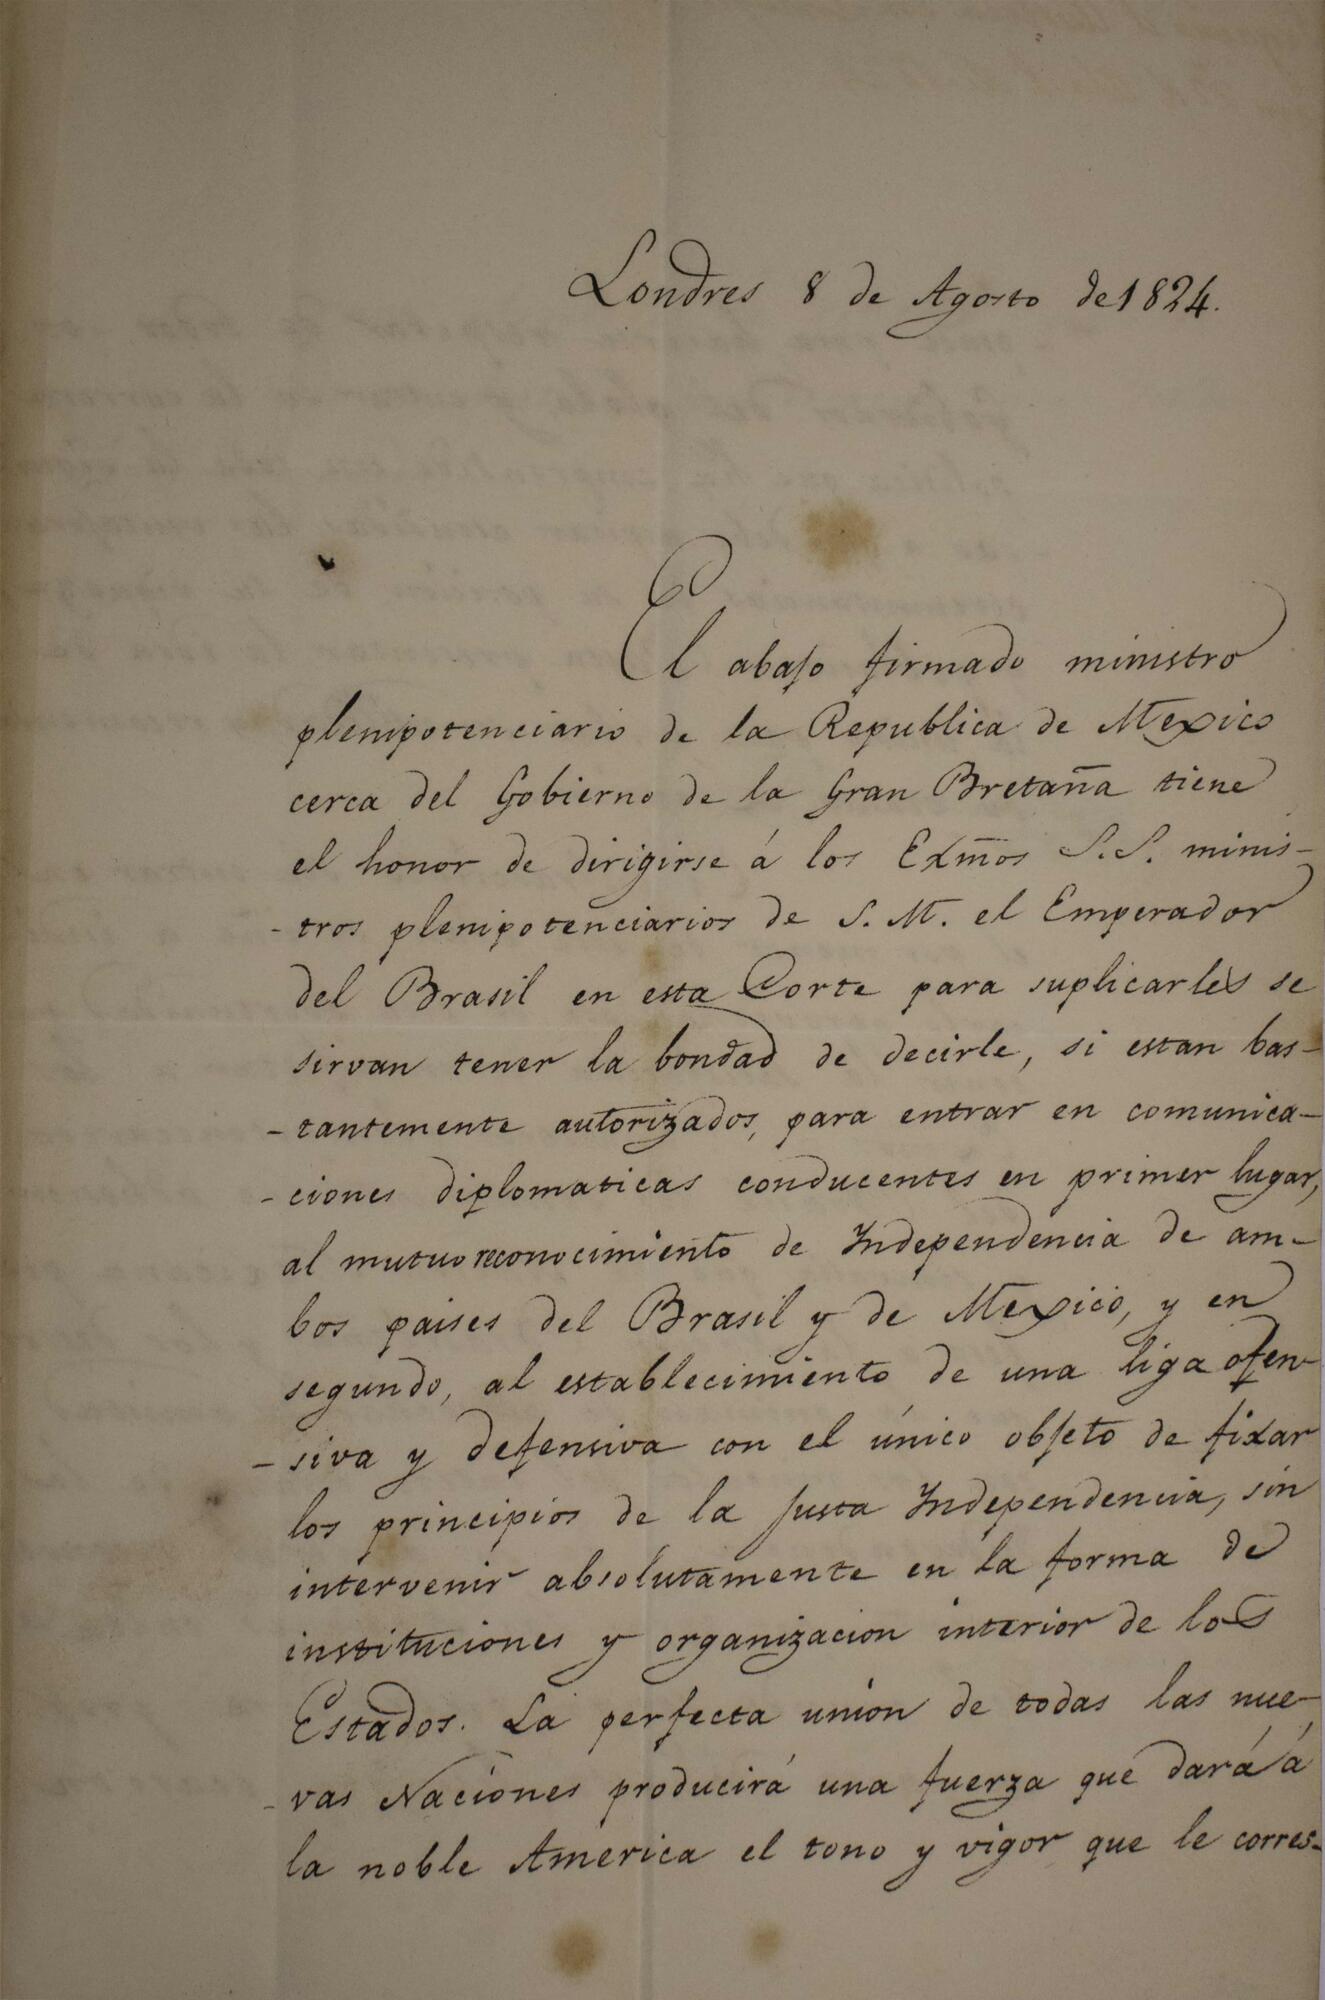 Londres 8 de Agosto de 1824.
El abajo firmado ministro
plenipotenciario de la Republica de Mexico
cerca del Gobierno de la Gran Bretaña tiene
el honor de dirigirse á los Exm̃os S.S. minis-
-tros plenipotenciarios de S. M. el Emperador
del Brasil en esta Corte para suplicarles se
sirvan tener la bondad de decirle, si estan bas-
-tantemente autorizados, para entrar en comunica-
-ciones diplomaticas conducentes en primer lugar,
al mutuo reconocimiento de Independencia de am-
bos paises del Brasil y de Mexico, y en
segundo, al establecimiento de una liga ofen-
-siva y defensiva con el único objeto de fixar
los principios de la justa Independencia, sin
intervenir absolutamente en la forma de
instituciones y organizacion interior de los
Estados. La perfecta union de todas las nue-
-vas Naciones producirá una fuerza que dará á
la noble America el tono y vigor que le corres-